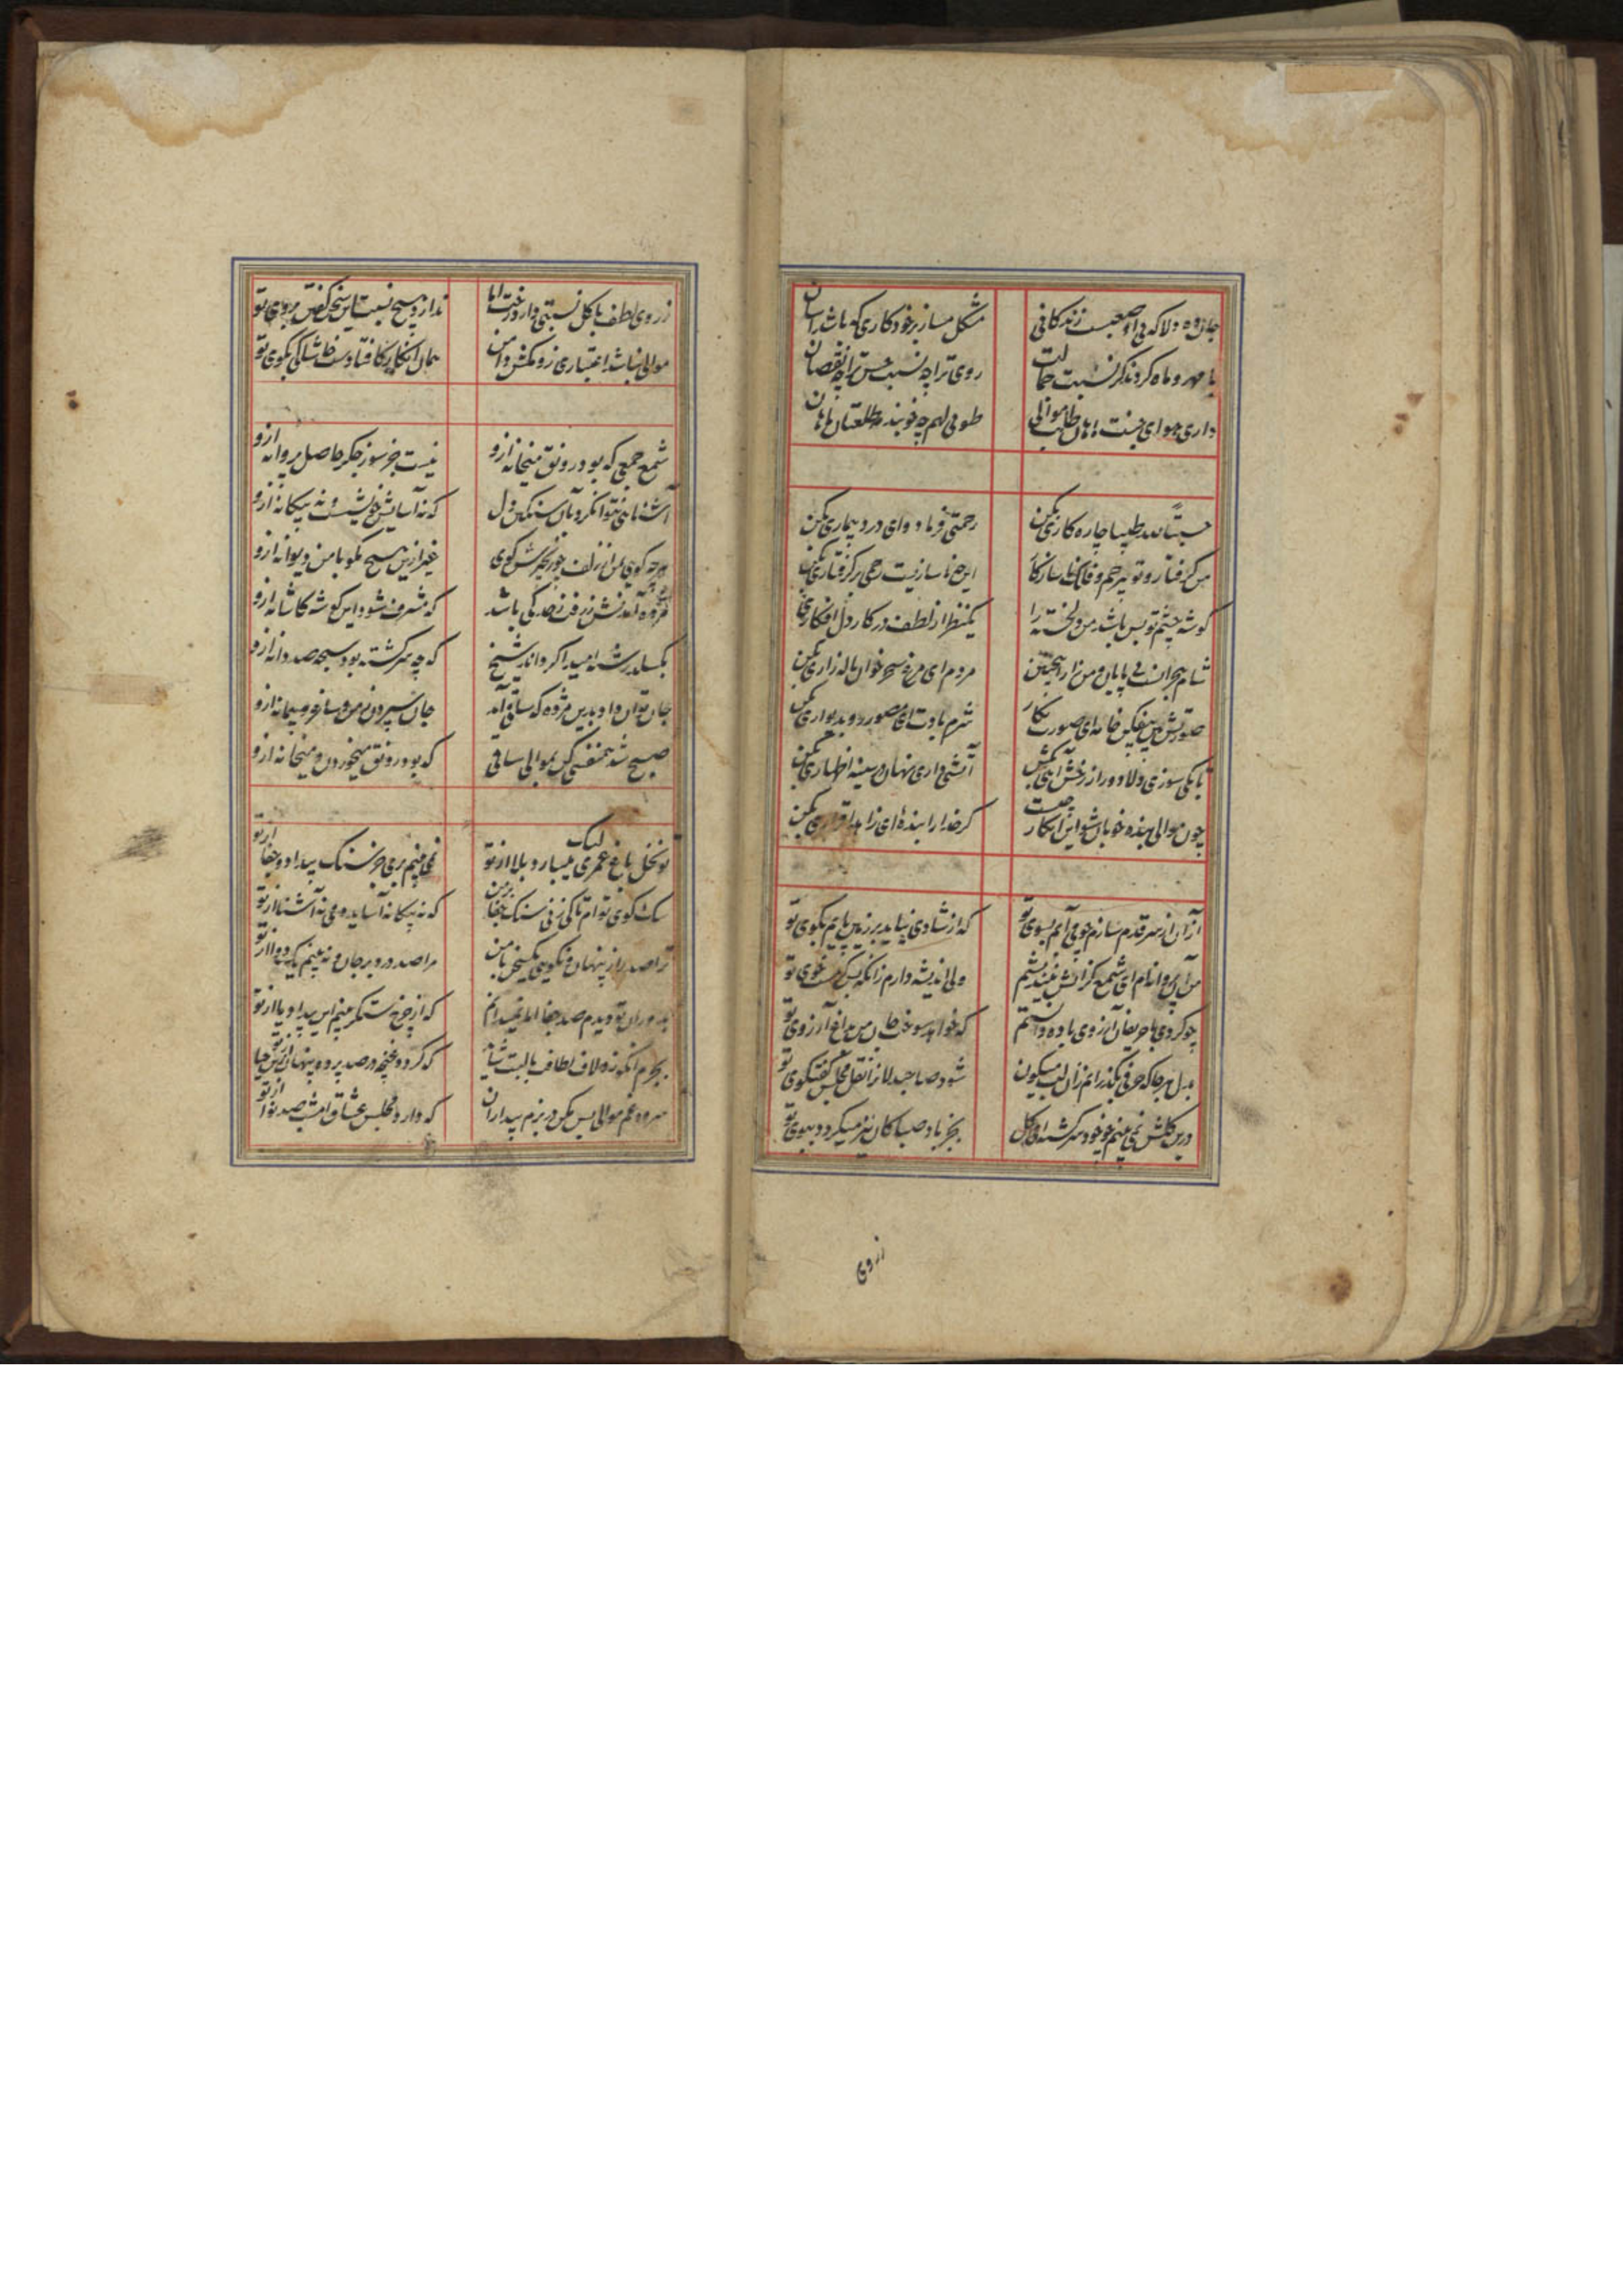 جان ده دلا که بی او صعبست زندکانی مشکل مساز بر خود کاری که باشد آسان
با مهر و ماه کردند کر نسبت جمالت روی ترا چه نسبت حسن ترا چه نقصان
داری هوای جنت طوبی لهم چه خوبند طلعتان
حسبة لله طبیبا چاره کاری بکن رحمتی فرما دوای درد بیماری بکن
من کرفتار و تو بیرحم و فلک ناسازکار این نیست رحمی بر کرفتاری بکن
کوشه چشم تو بس باشد من دلخسته را یکنظر از لطف در کار دل افکاری بکن
شام هجران بی پایان و من زار اینچنین مردم ای مرغ سحر خوان ناله زاری بکن
صورتش بین بیفکن خامه ای صورت نکار شرم بادت ای مصور رو بدیواری بکن
تا بکی سوزی دلا دور از رخش آهی بکش آتشی داری نهان در سینه اظهاری بکن
چون موالی بنده خوبان شو این انکار چیست کر خدا را بنده ای زاهد اقراری بکن
از آن از سر قدم سازم چو می آیم بسوی تو که از شادی نیاید بر زمین پایم بکوی تو
من آن پروانه ام ای شمع کز آتش نیندیشم ولی اندیشه دارم زانکه بس کرمست خوی تو
چو کردی با حریفان آرزوی باده دانستم که خواهد سوخت جان من بداغ آرزوی تو
بدل هر جا که حرفی بکذرانم زان لب میکون شود صاحبدلانرا نقل مجلس کفتکوی تو
درین کلشن نمی بینم چو خود سرکشته ای کل بجز باد صبا کان نیز میکردد ببوی تو
ز روی
ز روی لطف با کل نسبتی دارد رخت اما ندارد هیچ نسبت این سخن کفتن بروی تو
موالی نباشد اعتباری زو مکش دامن همان انکار کافتادست خاشاکی بکوی تو
شمع جمعی که بود رونق میخانه ازو نیست جز سوز جکر حاصل پروانه ازو
آشنایی نتوان کرد بآن سنکین دل که نه آسایش خویشست و نه بیکانه ازو
هر چه کویی بمن از زلف چو زنجیرش کوی غیر ازین هیچ مکو با من دیوانه ازو
مژده آمدنش رفت ز حد کی باشد که مشرف شود این کوشه کاشانه ازو
بکسلد رشته امید اکر داند شیخ که چه سرکشته بود سبحه صد دانه ازو
جان توان داد بدین مژده که ساقی آمد جان سپردن ز من و ساغر و پیمانه ازو
صبح شد همنفسی کن بموالی ساقی که بود رونق میخوردن و میخانه ازو
تو نخل باغ عمری لیک میبارد بلا از تو نمی بینم بری جز سنک بیداد و جفا از تو
سک کوی توام تا کی زنی سنک جفا بر من که نه بیکانه آسایش و نه آشنا از تو
ترا صد راز پنهان و نکویی یکسخن با من مرا صد درد بر جان و نه بینم یک دوا از تو
بدوران تو دیدم صد جفا اما نمیدانم که از چرخ ستمکر بینم این بیداد یا از تو
بجرم آنکه زد لاف لطافت با لبت شاید که کردد غنچه در صد پرده پنهان از حیا
سرود غم موالی بس مکن در بزم بیداران که دارد مجلس عشاق امشب صد نوا از تو